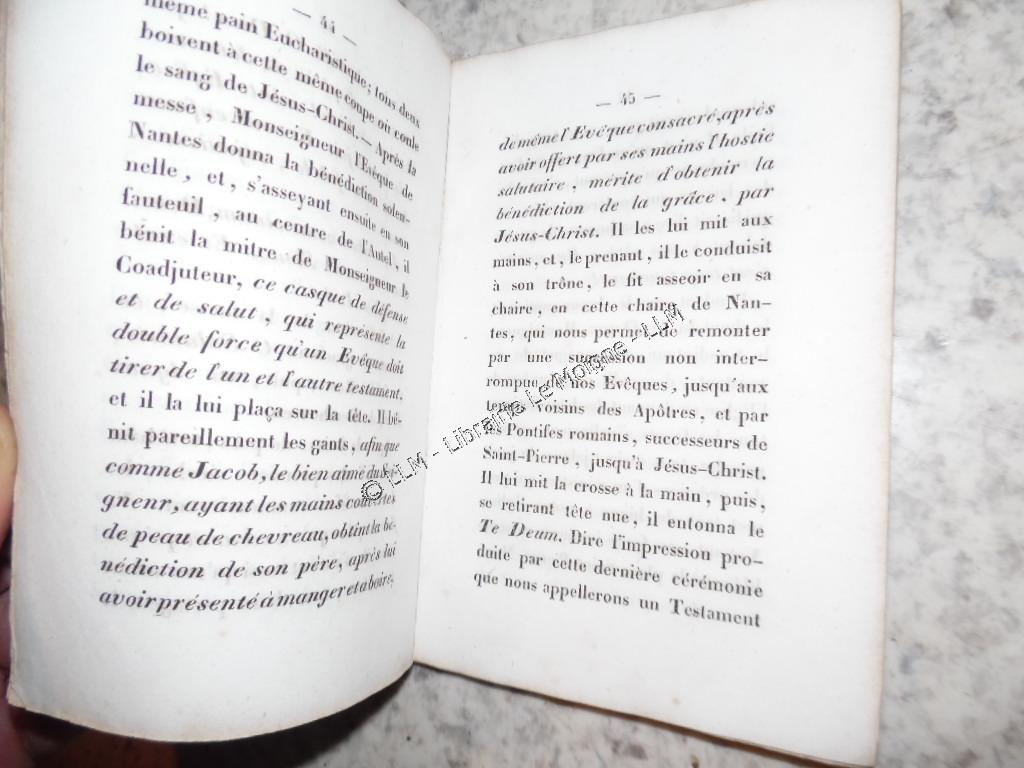 — 44 —
même pain Eucharistique; tous deux
boivent à cette même coupe où coule
le sang de Jésus-Christ. — Après la
messe, Monseigneur l'Evêque de
Nantes donna la bénédiction solen-
nelle, et, s'asseyant ensuite en son
fauteuil, au centre de l'Autel, il
bénit la mitre de Monseigneur le
Coadjuteur, ce casque de défense
et de salut, qui représente la
double force qu'un Evêque doit
tirer de l'un et l'autre testament,
et il la lui plaça sur la tête. Il bé-
nit pareillement les gants, afin que
comme Jacob, le bien aimé du
gnenr, ayant les mains couvertes
de peau de chevreau, obtint la bé-
nédiction de son père, après lui
avoir présenté à manger et a boire,
— 45 —
de même l'Evêque consacré, après
avoir offert par ses mains l'hostie
salutaire, mérite d'obtenir la
bénédiction de la grâce, par
Jésus-Christ. Il les lui mit aux
mains, et, le prenant, il le conduisit
à son trône, le fit asseoir en sa
chaire, en cette chaire de Nan-
tes, qui nous permet de remonter
par une succession non inter-
rompue de nos Evêques, jusqu'aux
temps voisins des Apôtres, et par
les Pontifes romains, successeurs de
Saint-Pierre, jusqu'à Jésus-Christ.
Il lui mit la crosse à la main, puis,
se retirant tête nue, il entonna le
Te Deum. Dire l'impression pro-
duite par cette dernière cérémonie
que nous appellerons un Testament
© LLM - Librairie Le Moigne - LLM